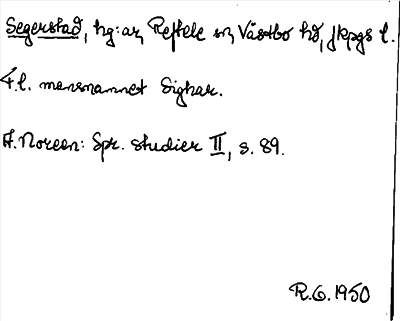 Segerstad, hg:ar, Reftele sn, Västbo hd, Jkpgs l.
F.l. mansnamnet Sighar.
A. Noreen: Spr. studier II, s. 89.
R.G. 1950